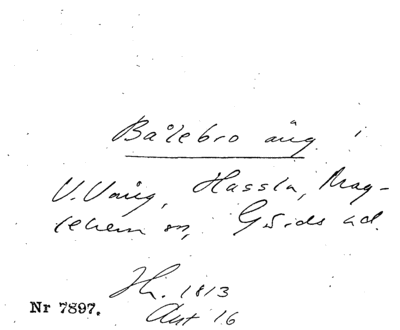 Bålebro äng i
V. Vång, Hassla, Mag-
lehem sn, Gärds hd.
Hh. 1813
Akt 16
Nr 7897.